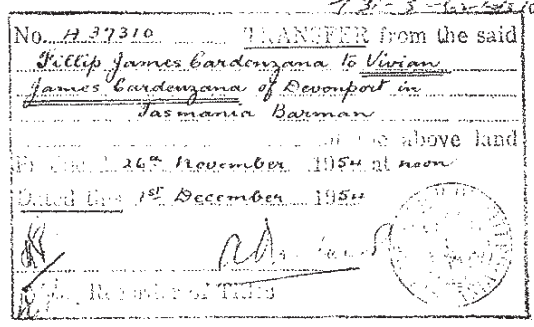 No. H 37310 TRANSFER from the said
Fillip James Cardenzana to Vivian
James Cardenzana of Devonport in
Tasmania Barman
of the above land
Produced 26th November 1954 at noon
Dated this 1st December 1954
Recorder of Titles